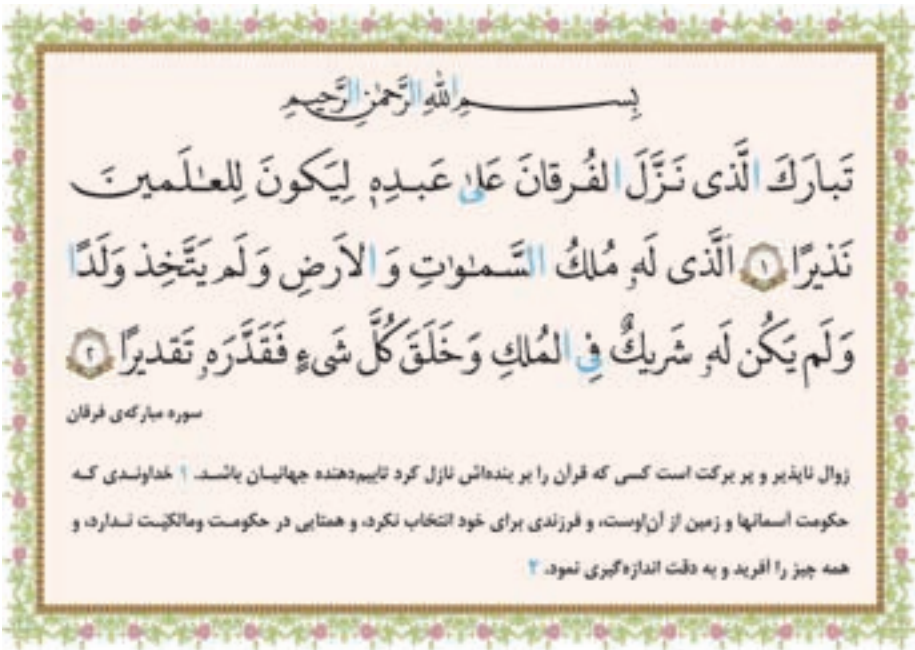 بِسـمِ اللهِ الرَّحمٰنِ الرَّحیمِ
تَبارَكَ الَّذی نَزَّلَ الفُرقانَ عَلیٰ عَبدِهٖ لِیَكونَ لِلعـٰلَمینَ
نَذیرًا ۱ اَلَّذی لَهٗ مُلكُ السَّمـٰوٰتِ وَ الاَرضِ وَ لَم یَتَّخِذ وَلَدًا
وَ لَم یَكُن لَهٗ شَریكٌ فِی المُلكِ وَ خَلَقَ كُلَّ شَیءٍ فَقَدَّرَهٗ تَقدیرًا ۲
سوره مبارکه‌ی فرقان
زوال ناپذیر و پر برکت است کسی که قرآن را بر بنده‌اش نازل کرد تابیم‌دهنده جهانیـان باشـد. ۱ خداونـدی کـه
حکومت آسمانها و زمین از آن‌اوست، و فرزندی برای خود انتخاب نکرد، و همتایی در حکومـت ومالکیّـت نـدارد، و
همه چیز را آفرید و به دقت اندازه‌گیری نمود. ۲